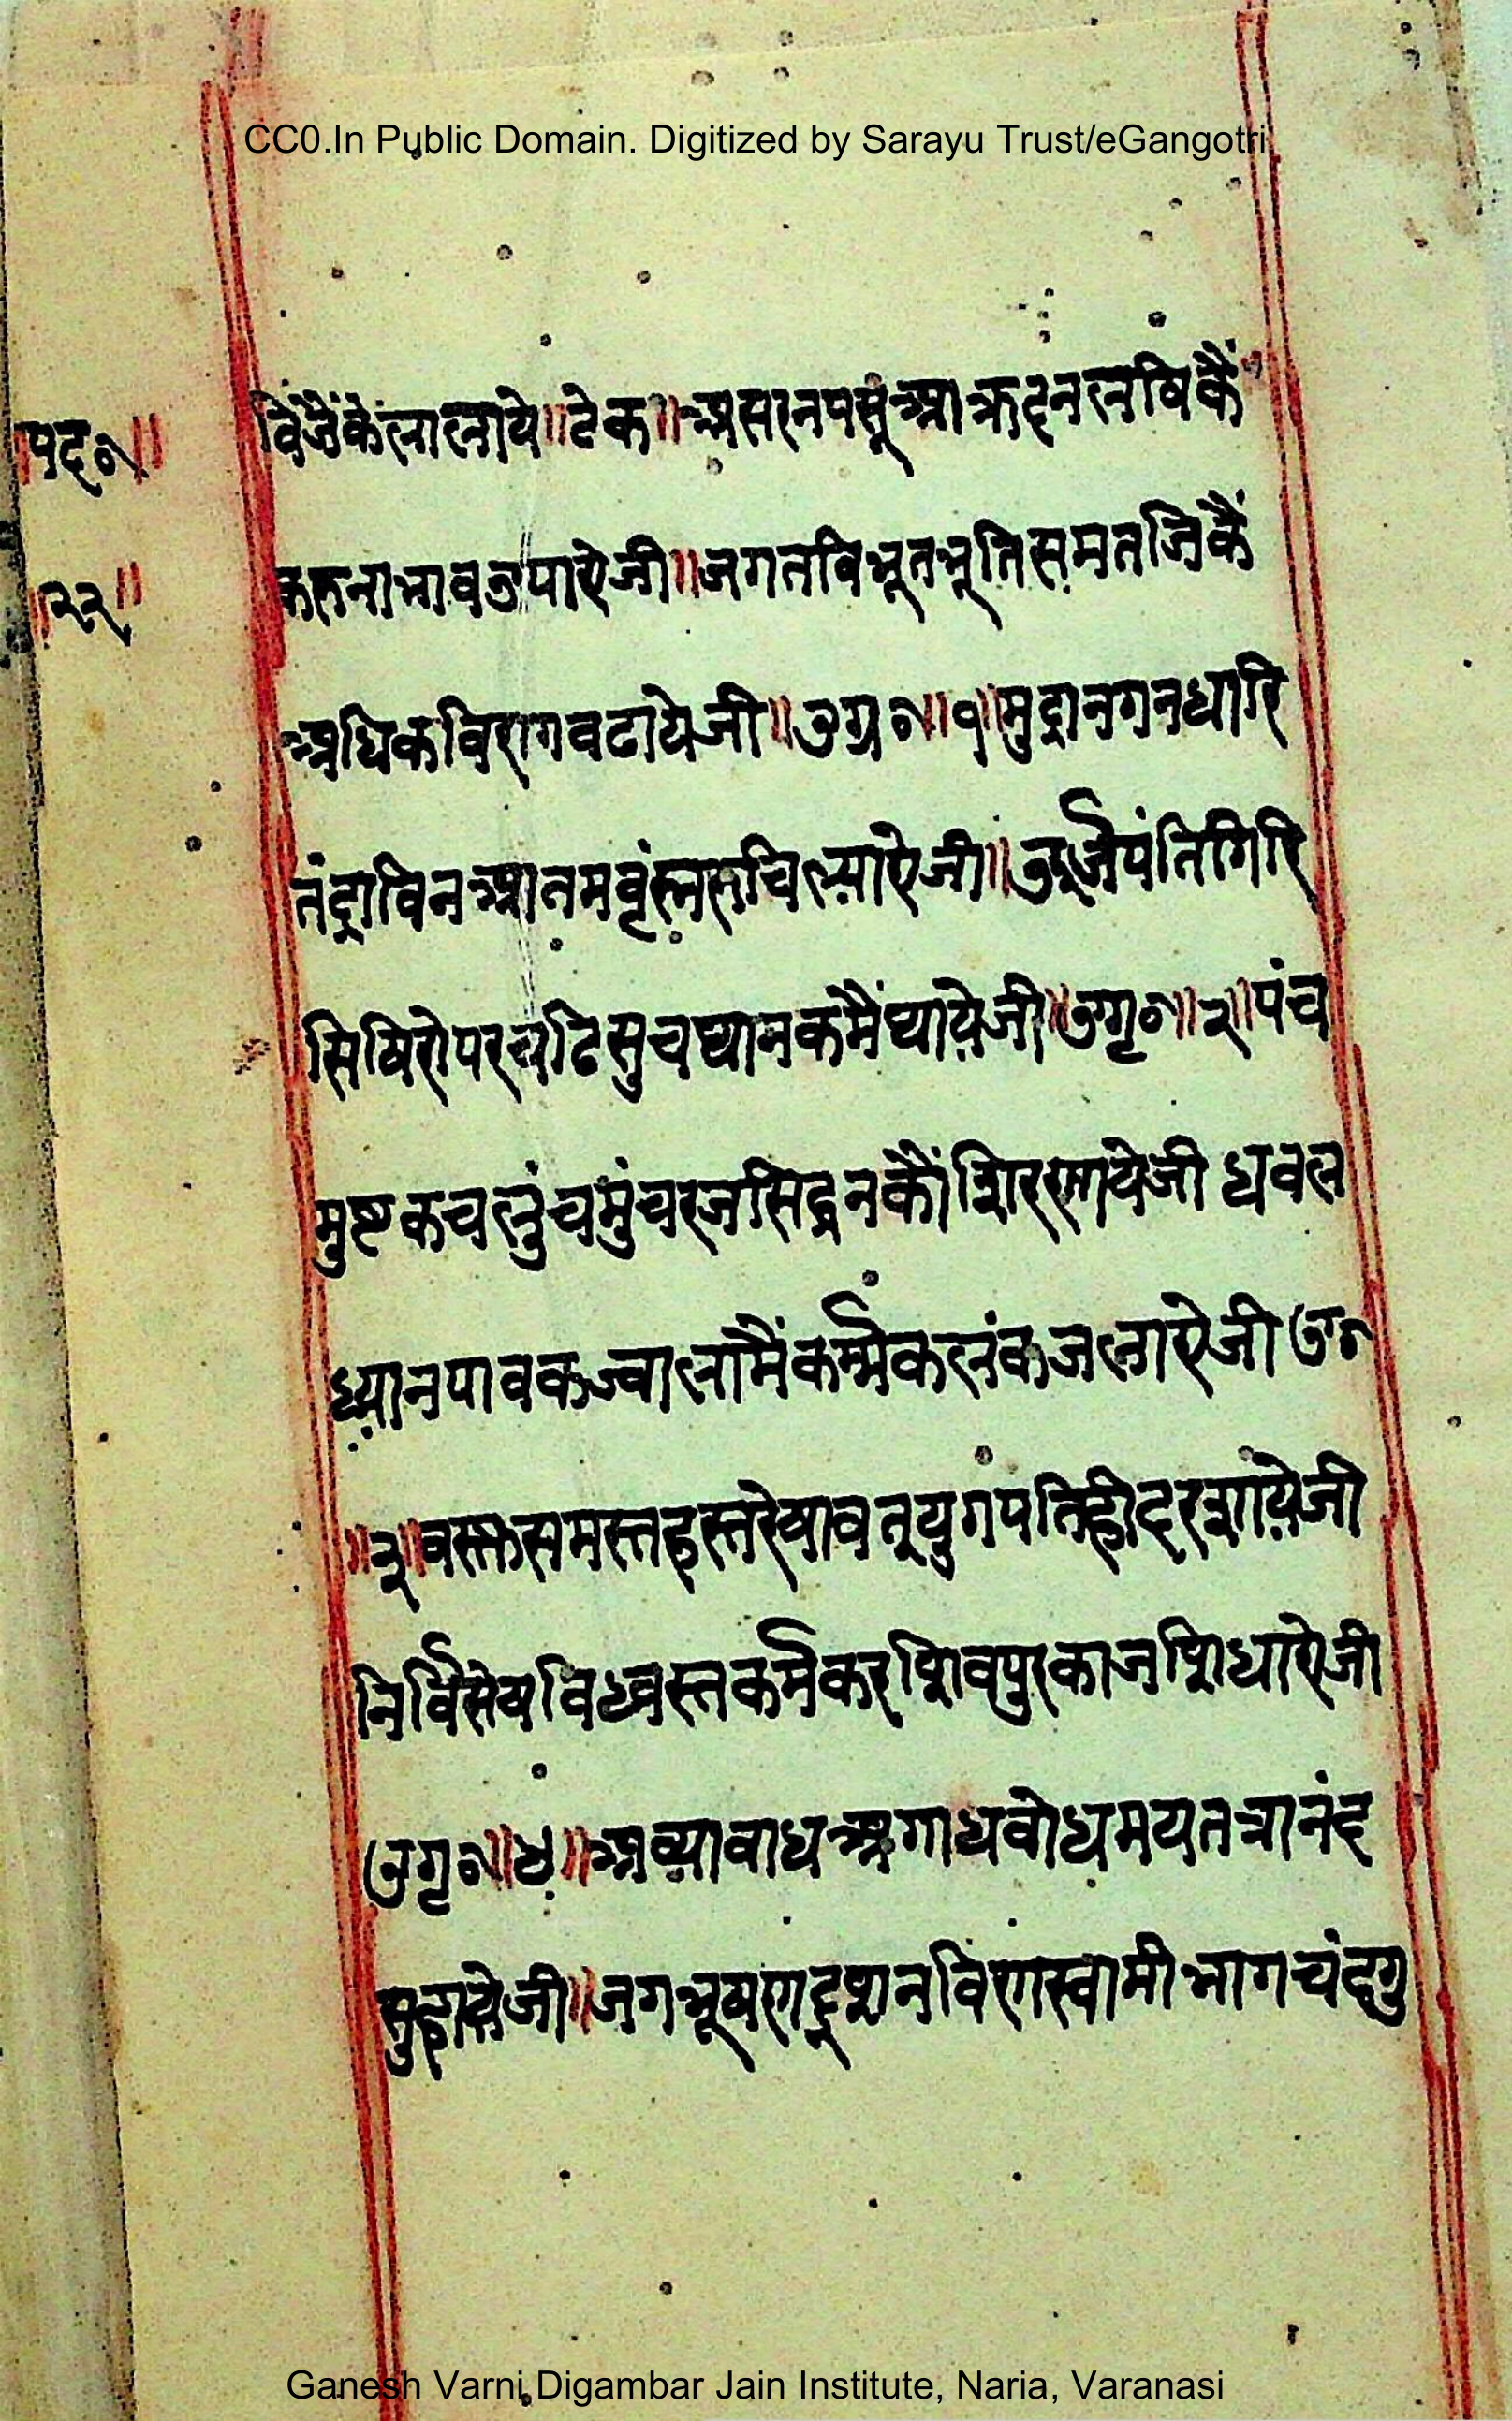 CC0.In Public Domain. Digitized by Sarayu Trust/eGangotri
॥पद०॥
॥२२॥
विंजैंकेंलालाये॥टेक॥असरनपसूआक्रदनलषिकैं॥
करुनाभावउपाऐजी॥जगतविभूतभूतिसमतजिकैं
अधिकविरागवढायेजी॥उग्र०॥१॥मुद्रानगनधारि
तंद्राविनआतमवृंह्मरुचिल्याऐजी॥उर्ज्जयंतिगिरि
सिषिरोपरचढिसुचध्यानकमैंध्यायेजी॥उग्गृ०॥२॥पंच
मुष्टकचलुंचमुंचरजसिद्धनकौंशिरणायेजी धवल
ध्यानपावकज्वालामैंकर्म्मकलंकजलाऐजी उग्र०
॥३॥वस्तसमस्तहस्तरेषावत्युगपतिहीदरशायेजी
निर्विसेषविध्वस्तकर्मकरशिवपुरकाजशिधाऐजी
उगृ०॥४॥अव्यावाधअगाधवोधमयतत्रानंद
सुहायेजी॥जगभूषणदूषनविंणस्वामी भागचंदगु
Ganesh Varni Digambar Jain Institute, Naria, Varanasi